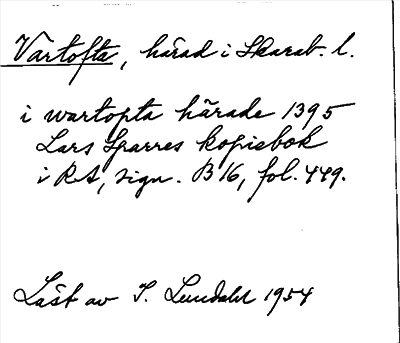 Vartofta, härad i Skarab. l.
i wartopta härade 1395
Lars Sparres kopiebok
i RA, sign. B 16, fol. 449.
Läst av I. Lundahl 1954